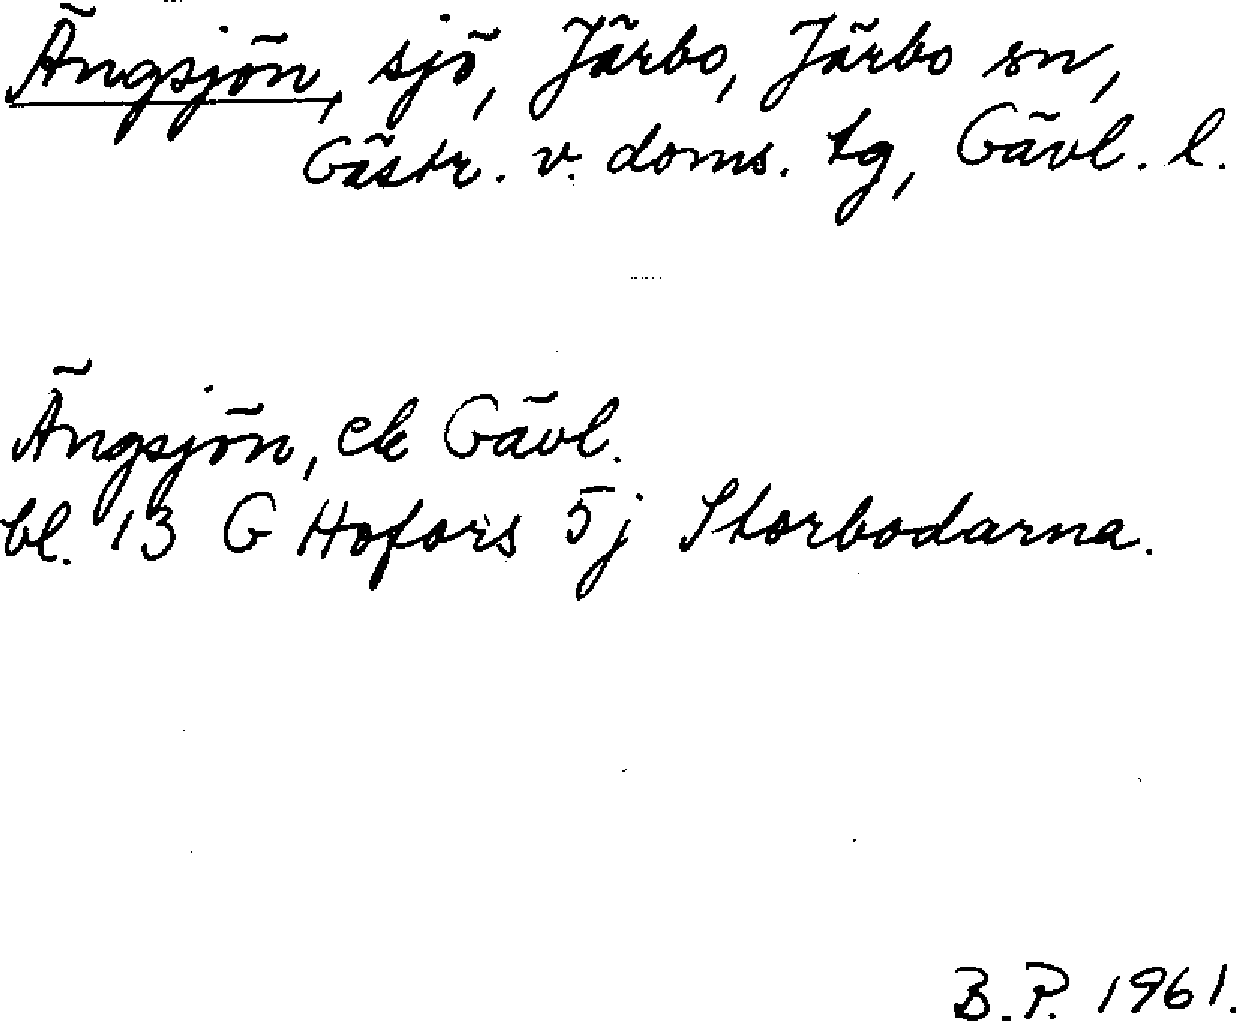 Ängsjön, sjö, Järbo, Järbo sn,
Gästr. v. doms. tg, Gävl. l.
Ängsjön, ek Gävl.
bl. 13 G Hofors 5j Storbodarna.
B.P. 1961.